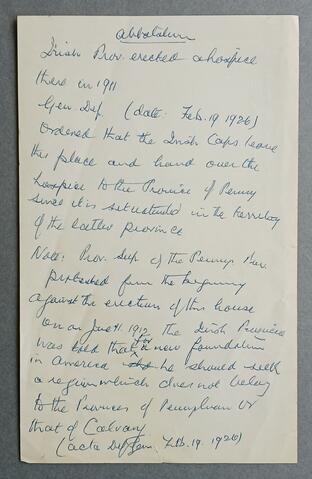 Abbotstown
Irish Prov. erected a hospice
there in 1911
Gen Def. (date: Feb. 19 1926)
ordered that the Irish Caps leave
this place and hand over the
hospice to the Province of Penny
since it is situated in the territory
of the latter province
Note: Prov. Sup of the Pennys Prov.
protested from the beginning
against the erection of this house
on June 11. 1912 the Irish Provincial
was told that for a new foundation
in America he should seek
a region which does not belong
to the Provinces of Pennsylvan or
that of Calvary
(acta Def Gen. Feb. 19. 1926)